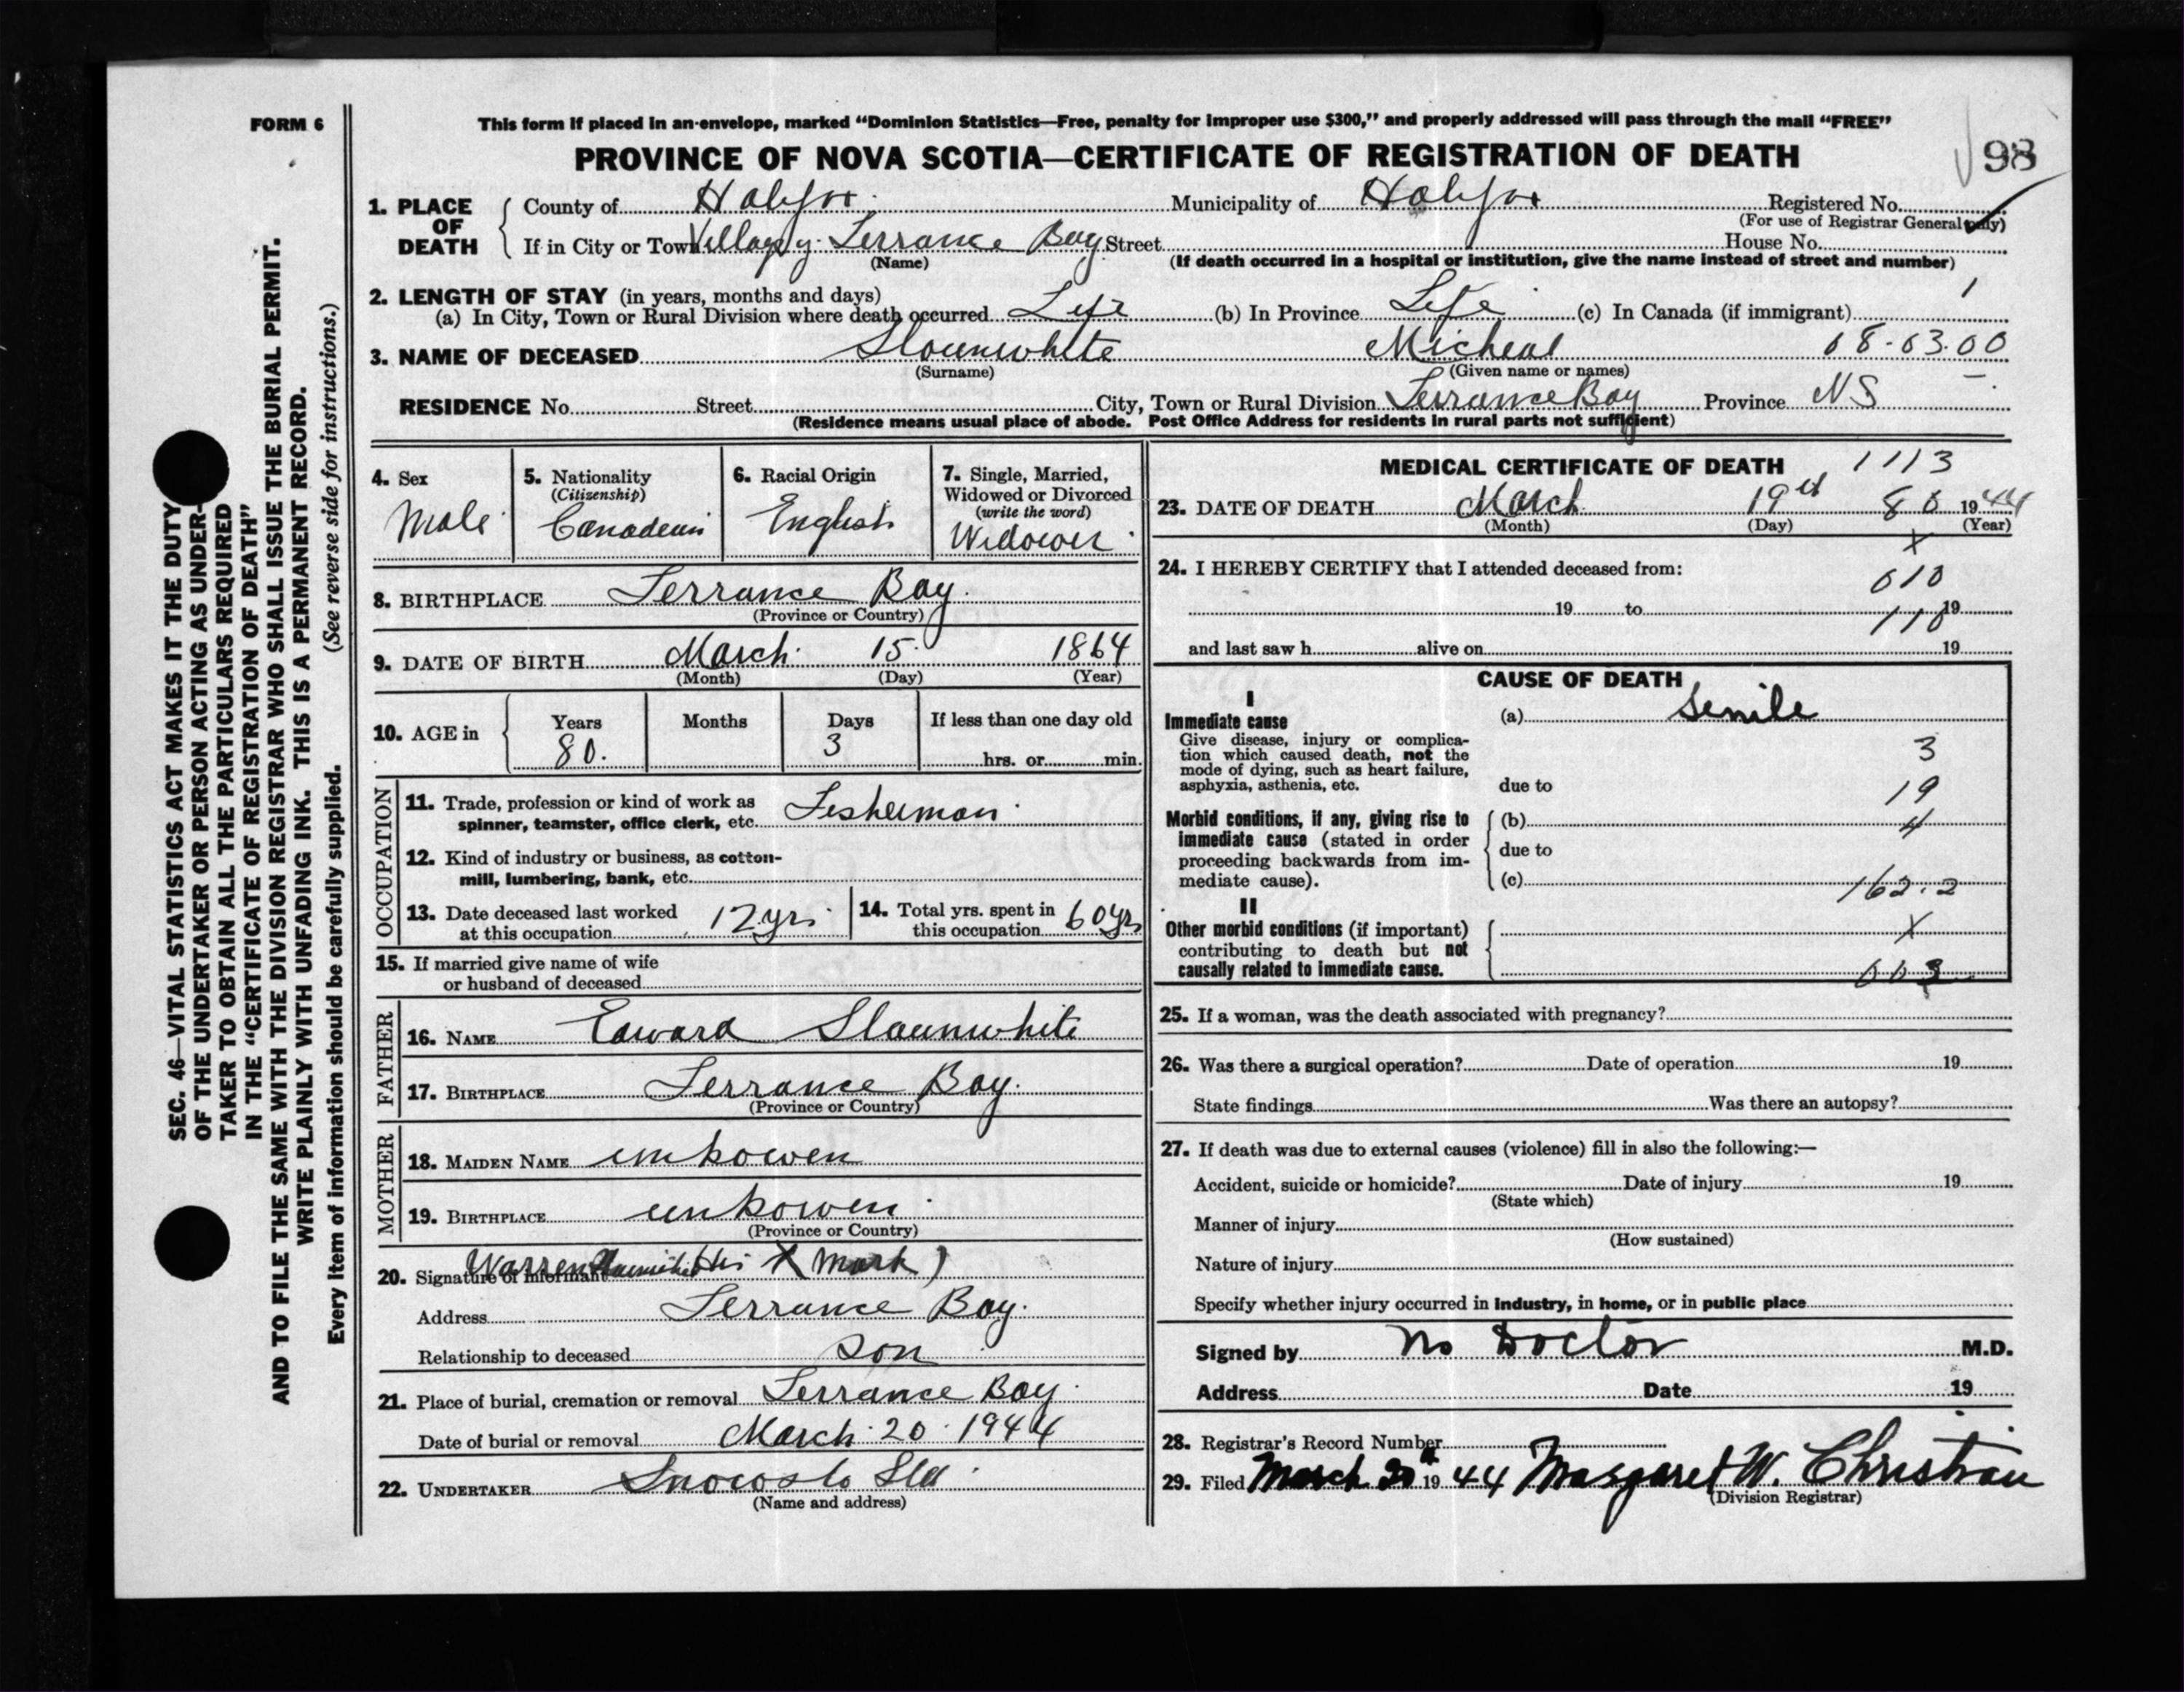 FORM 6
This form if placed in an envelope, marked “Dominion Statistics—Free, penalty for improper use $300,” and properly addressed will pass through the mail “FREE”
PROVINCE OF NOVA SCOTIA—CERTIFICATE OF REGISTRATION OF DEATH
98
1. PLACE OF DEATH
County of Halifax Municipality of Halifax Registered No.
(For use of Registrar General only)
If in City or Town Village of Terrance Bay Street House No.
(Name)
(If death occurred in a hospital or institution, give the name instead of street and number)
2. LENGTH OF STAY (in years, months and days)
1
(a) In City, Town or Rural Division where death occurred Life (b) In Province Life (c) In Canada (if immigrant)
3. NAME OF DECEASED Slaunwhite Micheal 08-03.00
(Surname) (Given name or names)
RESIDENCE No. Street City, Town or Rural Division Terrance Bay Province NS
(Residence means usual place of abode. Post Office Address for residents in rural parts not sufficient)
4. Sex
Male
5. Nationality
(Citizenship)
Canadian
6. Racial Origin
English
7. Single, Married,
Widowed or Divorced
(write the word)
Widower
8. BIRTHPLACE Terrance Bay
(Province or Country)
9. DATE OF BIRTH March 15 1864
(Month) (Day) (Year)
10. AGE in
Years Months Days If less than one day old
80. 3 hrs. or min.
OCCUPATION
11. Trade, profession or kind of work as
spinner, teamster, office clerk, etc. Fisherman
12. Kind of industry or business, as cotton-
mill, lumbering, bank, etc.
13. Date deceased last worked
at this occupation 12 yrs
14. Total yrs. spent in
this occupation 60 yrs
15. If married give name of wife
or husband of deceased
FATHER
16. NAME Edward Slaunwhite
17. BIRTHPLACE Terrance Bay.
(Province or Country)
MOTHER
18. MAIDEN NAME unkowen
19. BIRTHPLACE unkowen
(Province or Country)
20. Signature of informant Warren Slaunwhite His X Mark )
Address Terrance Bay.
Relationship to deceased Son
21. Place of burial, cremation or removal Terrance Bay
Date of burial or removal March 20 1944
22. UNDERTAKER
(Name and address)
MEDICAL CERTIFICATE OF DEATH 1113
23. DATE OF DEATH March 19th 80 1944
(Month) (Day) (Year)
X
24. I HEREBY CERTIFY that I attended deceased from:
010
19 to 19
110
and last saw h alive on 19
CAUSE OF DEATH
I
Immediate cause
Give disease, injury or complica-
tion which caused death, not the
mode of dying, such as heart failure,
asphyxia, asthenia, etc.
(a) Senile
3
due to
19
Morbid conditions, if any, giving rise to
immediate cause (stated in order
proceeding backwards from im-
mediate cause).
(b) 4
due to
(c)
162.2
II
Other morbid conditions (if important)
contributing to death but not
causally related to immediate cause.
X
25. If a woman, was the death associated with pregnancy?
26. Was there a surgical operation? Date of operation 19
State findings Was there an autopsy?
27. If death was due to external causes (violence) fill in also the following:—
Accident, suicide or homicide? Date of injury 19
(State which)
Manner of injury
(How sustained)
Nature of injury
Specify whether injury occurred in industry, in home, or in public place
Signed by No Doctor M.D.
Address Date 19
28. Registrar's Record Number
29. Filed March 20th 1944 Margaret W. Christian
(Division Registrar)
SEC. 46—VITAL STATISTICS ACT MAKES IT THE DUTY
OF THE UNDERTAKER OR PERSON ACTING AS UNDER-
TAKER TO OBTAIN ALL THE PARTICULARS REQUIRED
IN THE “CERTIFICATE OF REGISTRATION OF DEATH”
AND TO FILE THE SAME WITH THE DIVISION REGISTRAR WHO SHALL ISSUE THE BURIAL PERMIT.
WRITE PLAINLY WITH UNFADING INK. THIS IS A PERMANENT RECORD.
Every item of information should be carefully supplied. (See reverse side for instructions.)